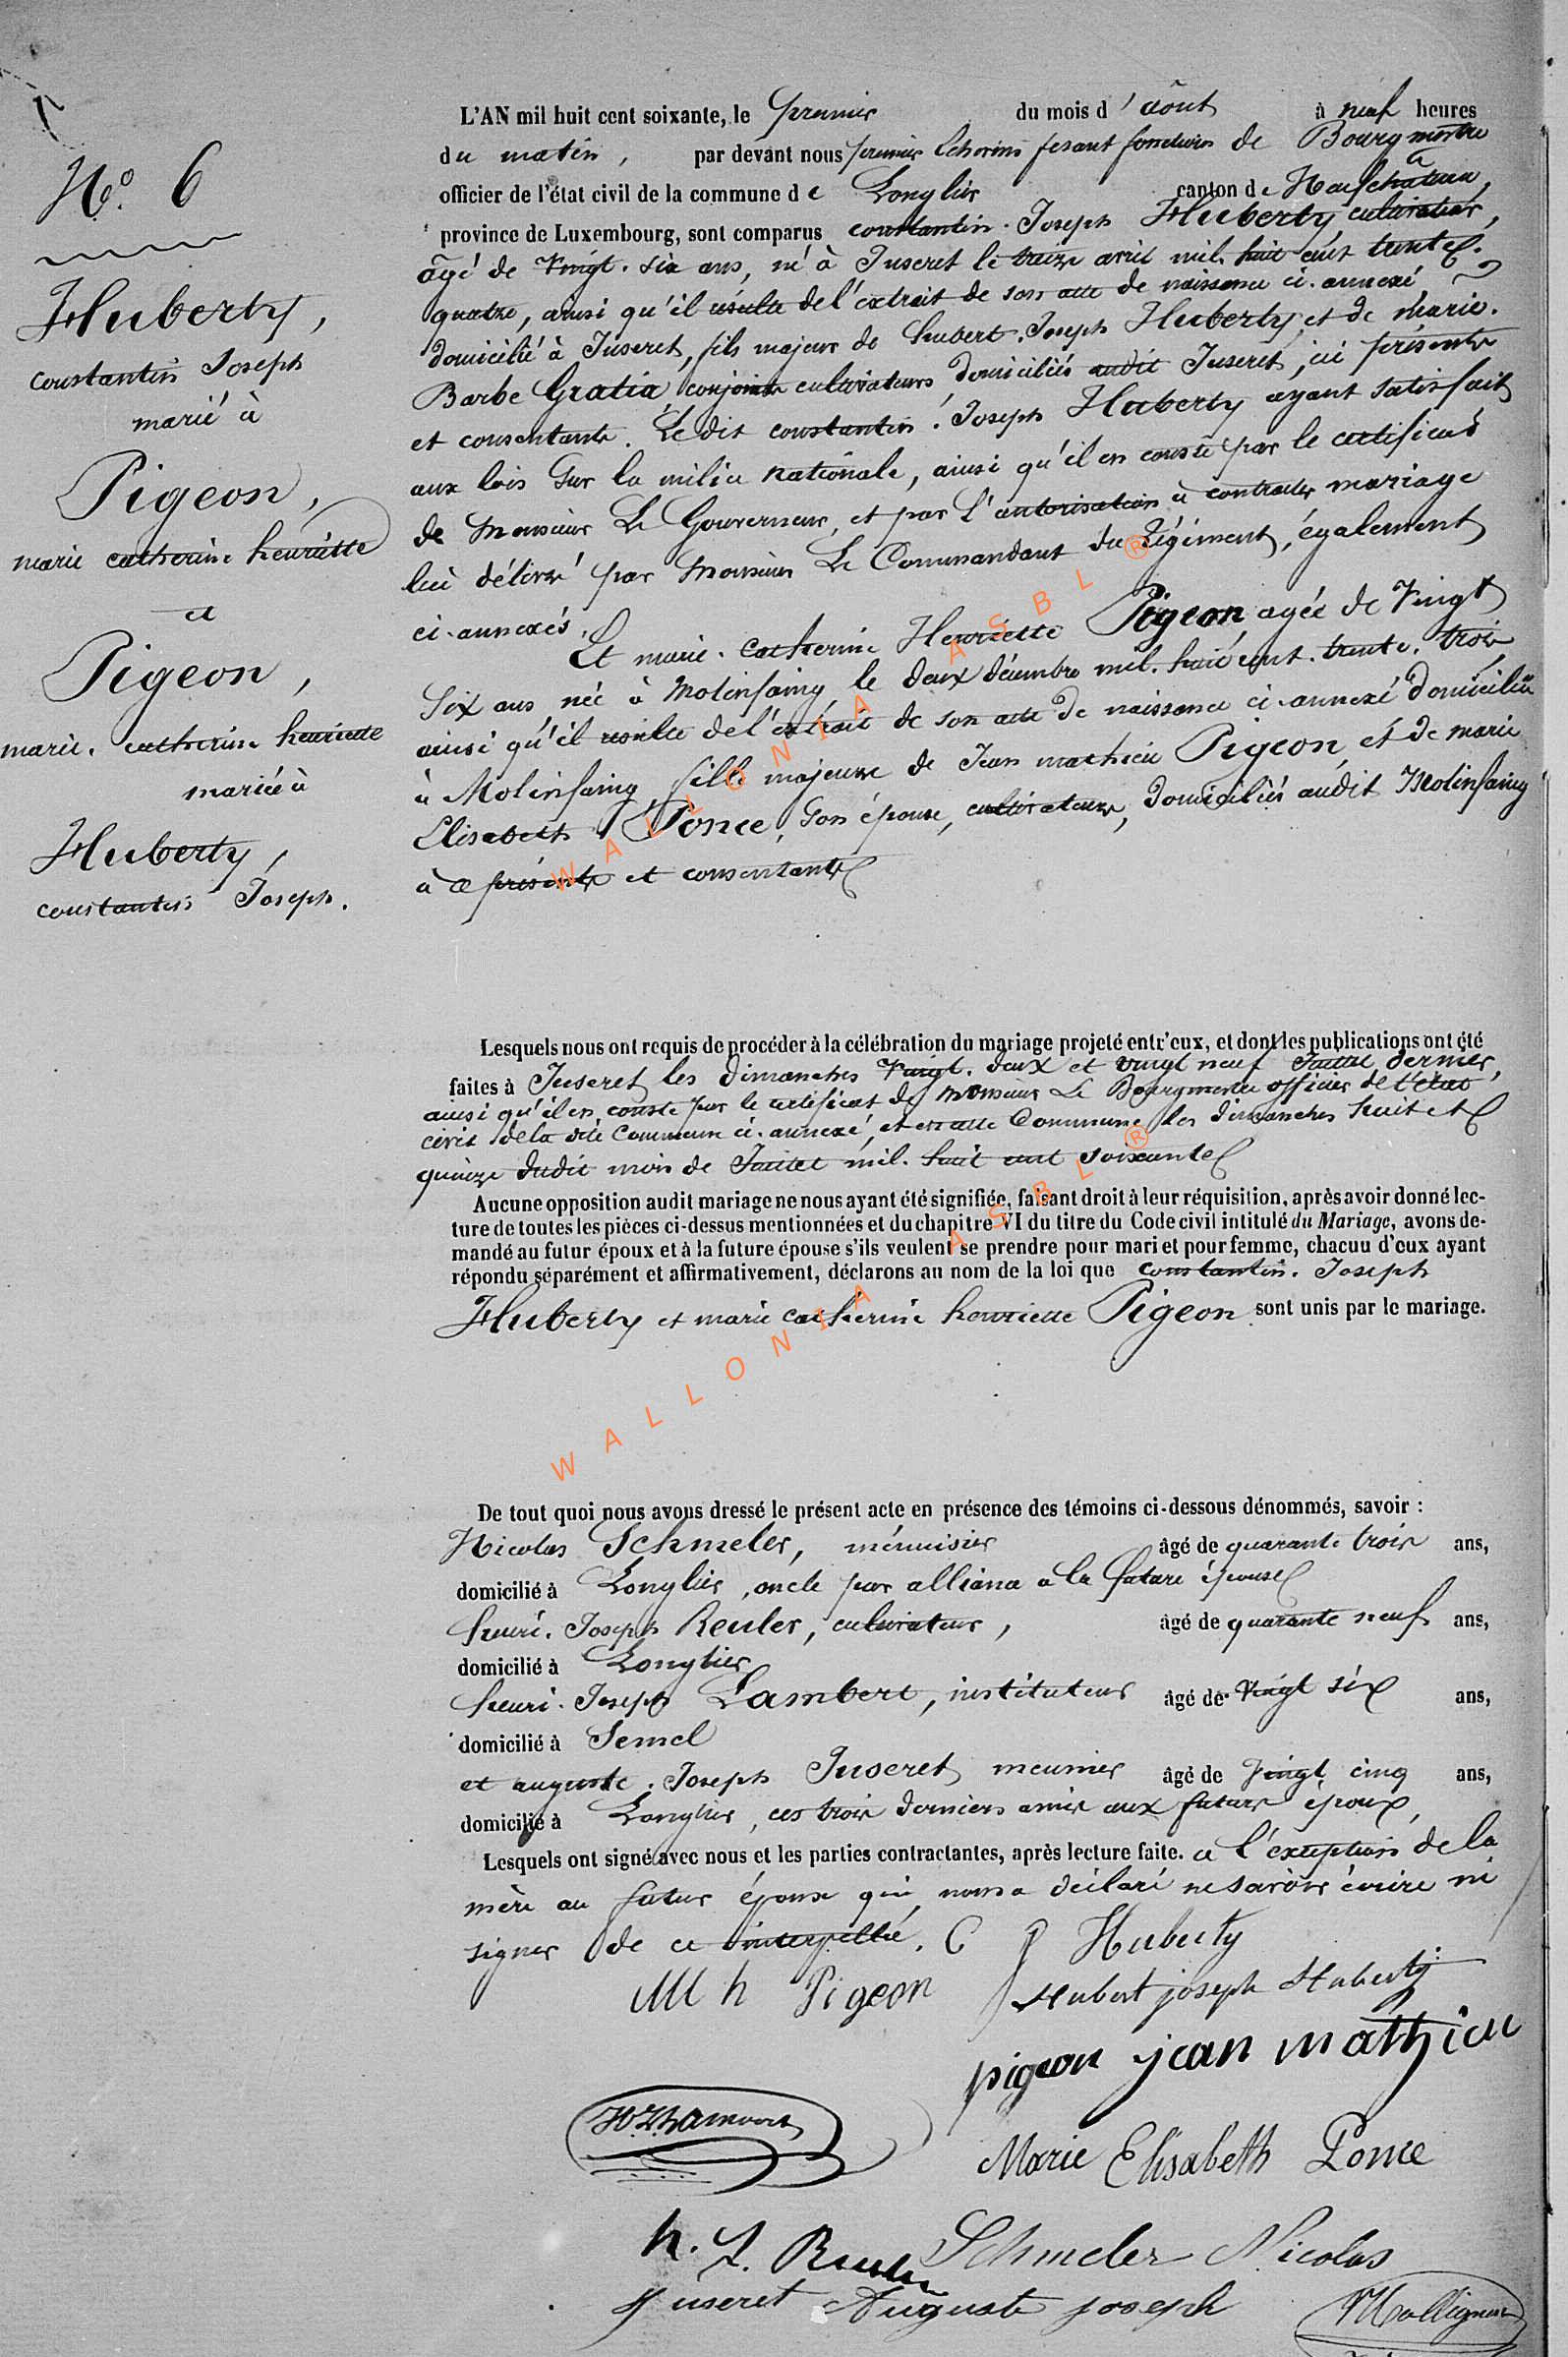 N.° 6
Huberty,
constantin Joseph
marié à
Pigeon,
marie catherine henriette
et
Pigeon,
marie. catherine henriette
mariée à
Huberty,
constantin Joseph.
L'AN mil huit cent soixante, le premier du mois d'août à neuf heures
du matin, par devant nous premier Echevin fesant fonctions de Bourgmestre
officier de l'état civil de la commune de Longlier canton de Neufchateau,
province de Luxembourg, sont comparus constantin. Joseph Huberty cultivateur,
âgé de Vingt. six ans, né à Juseret le treize avril mil. huit cent trente.
quatre, ainsi qu'il résulte de l'extrait de son acte de naissance ci. annexé,
domicilié à Juseret, fils majeur de hubert. Joseph Huberty, et de marie.
Barbe Gratia, conjoints cultivateurs, domiciliés audit Juseret, ici présents
et consentants. Le dit constantin. Joseph Huberty ayant satisfait
aux lois sur la milice nationale, ainsi qu'il en conste par le certificat
de Monsieur Le Gouverneur, et par l'autorisation à contracter mariage
lui délivré par Monsieur Le Commandant du Régiment, également
ci. annexés.
Et marie. catherine Henriette Pigeon, agée de Vingt
Six ans née à Molinfaing le deux décembre mil. huit cent. trente. trois
ainsi qu'il résulte de l'extrait de son acte de naissance ci. annexé domiciliée
à Molinfaing fille majeure de Jean mathieu Pigeon, et de marie
Elisabeth Ponce, son épouse, cultivateurs, domiciliés audit Molinfaing
à ce présents et consentants
Lesquels nous ont requis de procéder à la célébration du mariage projeté entr'eux, et dont les publications ont été
faites à Juseret les dimanches Vingt. deux et vingt neuf Juillet dernier,
ainsi qu'il en conste par le certificat de Monsieur Le Bourgmestre officier de l'état
civil de la dite Commune ci. annexé, et en cette Commune les dimanches huit et
quinze dudit mois de Juillet mil. huit cent soixante
Aucune opposition audit mariage ne nous ayant été signifiée, faisant droit à leur réquisition, après avoir donné lec-
ture de toutes les pièces ci-dessus mentionnées et du chapitre VI du titre du Code civil intitulé du Mariage, avons de-
mandé au futur époux et à la future épouse s'ils veulent se prendre pour mari et pour femme, chacuu d'eux ayant
répondu séparément et affirmativement, déclarons au nom de la loi que constantin. Joseph
Huberty et marie catherine henriette Pigeon sont unis par le mariage.
De tout quoi nous avons dressé le présent acte en présence des témoins ci-dessous dénommés, savoir :
Nicolas Schmeler, ménuisier âgé de quarante trois ans,
domicilié à Longlier, oncle par alliance à la future épouse
henri. Joseph Reuler, cultivateur, âgé de quarante neuf ans,
domicilié à Longlier
henri. Joseph Lambert, instituteur âgé de Vingt six ans,
domicilié à Semel
et auguste. Joseph Juseret meunier âgé de Vingt cinq ans,
domicilié à Longlier, ces trois derniers amis aux futurs époux,
Lesquels ont signé avec nous et les parties contractantes, après lecture faite. à l'exception de la
mère au futur époux qui nous a déclaré ne savoir écrire ni
signer de ce interpellée. C J Huberty
M C h Pigeon Hubert joseph Huberty
pigeon jean mathieu
Marie Elisabeth Ponce
h. J. Reuler Schmeler Nicolas
Juseret Auguste joseph
WALLONIA ASBL ®
WALLONIA ASBL ®